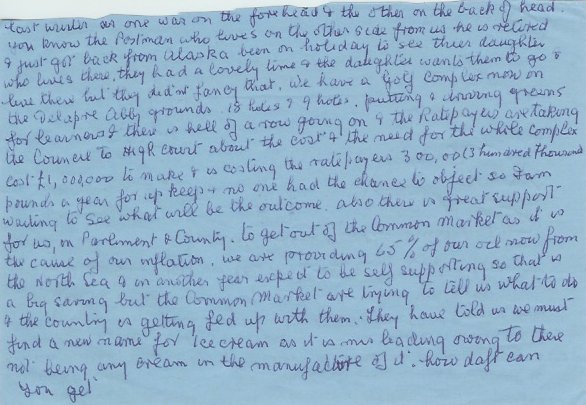 last winter as one was on the forehead & the other on the back of head.
you know the Postman who lives on the other side from us he is retired
& just got back from Alaska been on holiday to see their daughter
who lives there, they had a lovely time & the daughter wants them to go &
live there but they didn't fancy that. we have a Golf complex now on
the Delapre Abby grounds. 18 holes & 9 holes. putting & driving greens
for learners & there is hell of a row going on & the Ratepayers are taking
the Council to High court about the cost & the need for the whole complex
cost £1,000,000 to make & is costing the ratepayers 300,00 (3 hundred Thousand
pounds a year for up keep & no one had the chance to object so I am
waiting to see what will be the outcome. also there is great support
for us, in Parlment & County. to get out of the Common Market as it is
the cause of our inflation. we are providing 65% of our oil now from
the North Sea & in another year expect to be self supporting so that is
a big saving but the Common Market are trying to tell us what to do
& the country is getting fed up with them. They have told us we must
find a new name for Ice cream as it is mis leading owong to there
not being any cream in the manufacture of it. how daft can
you get